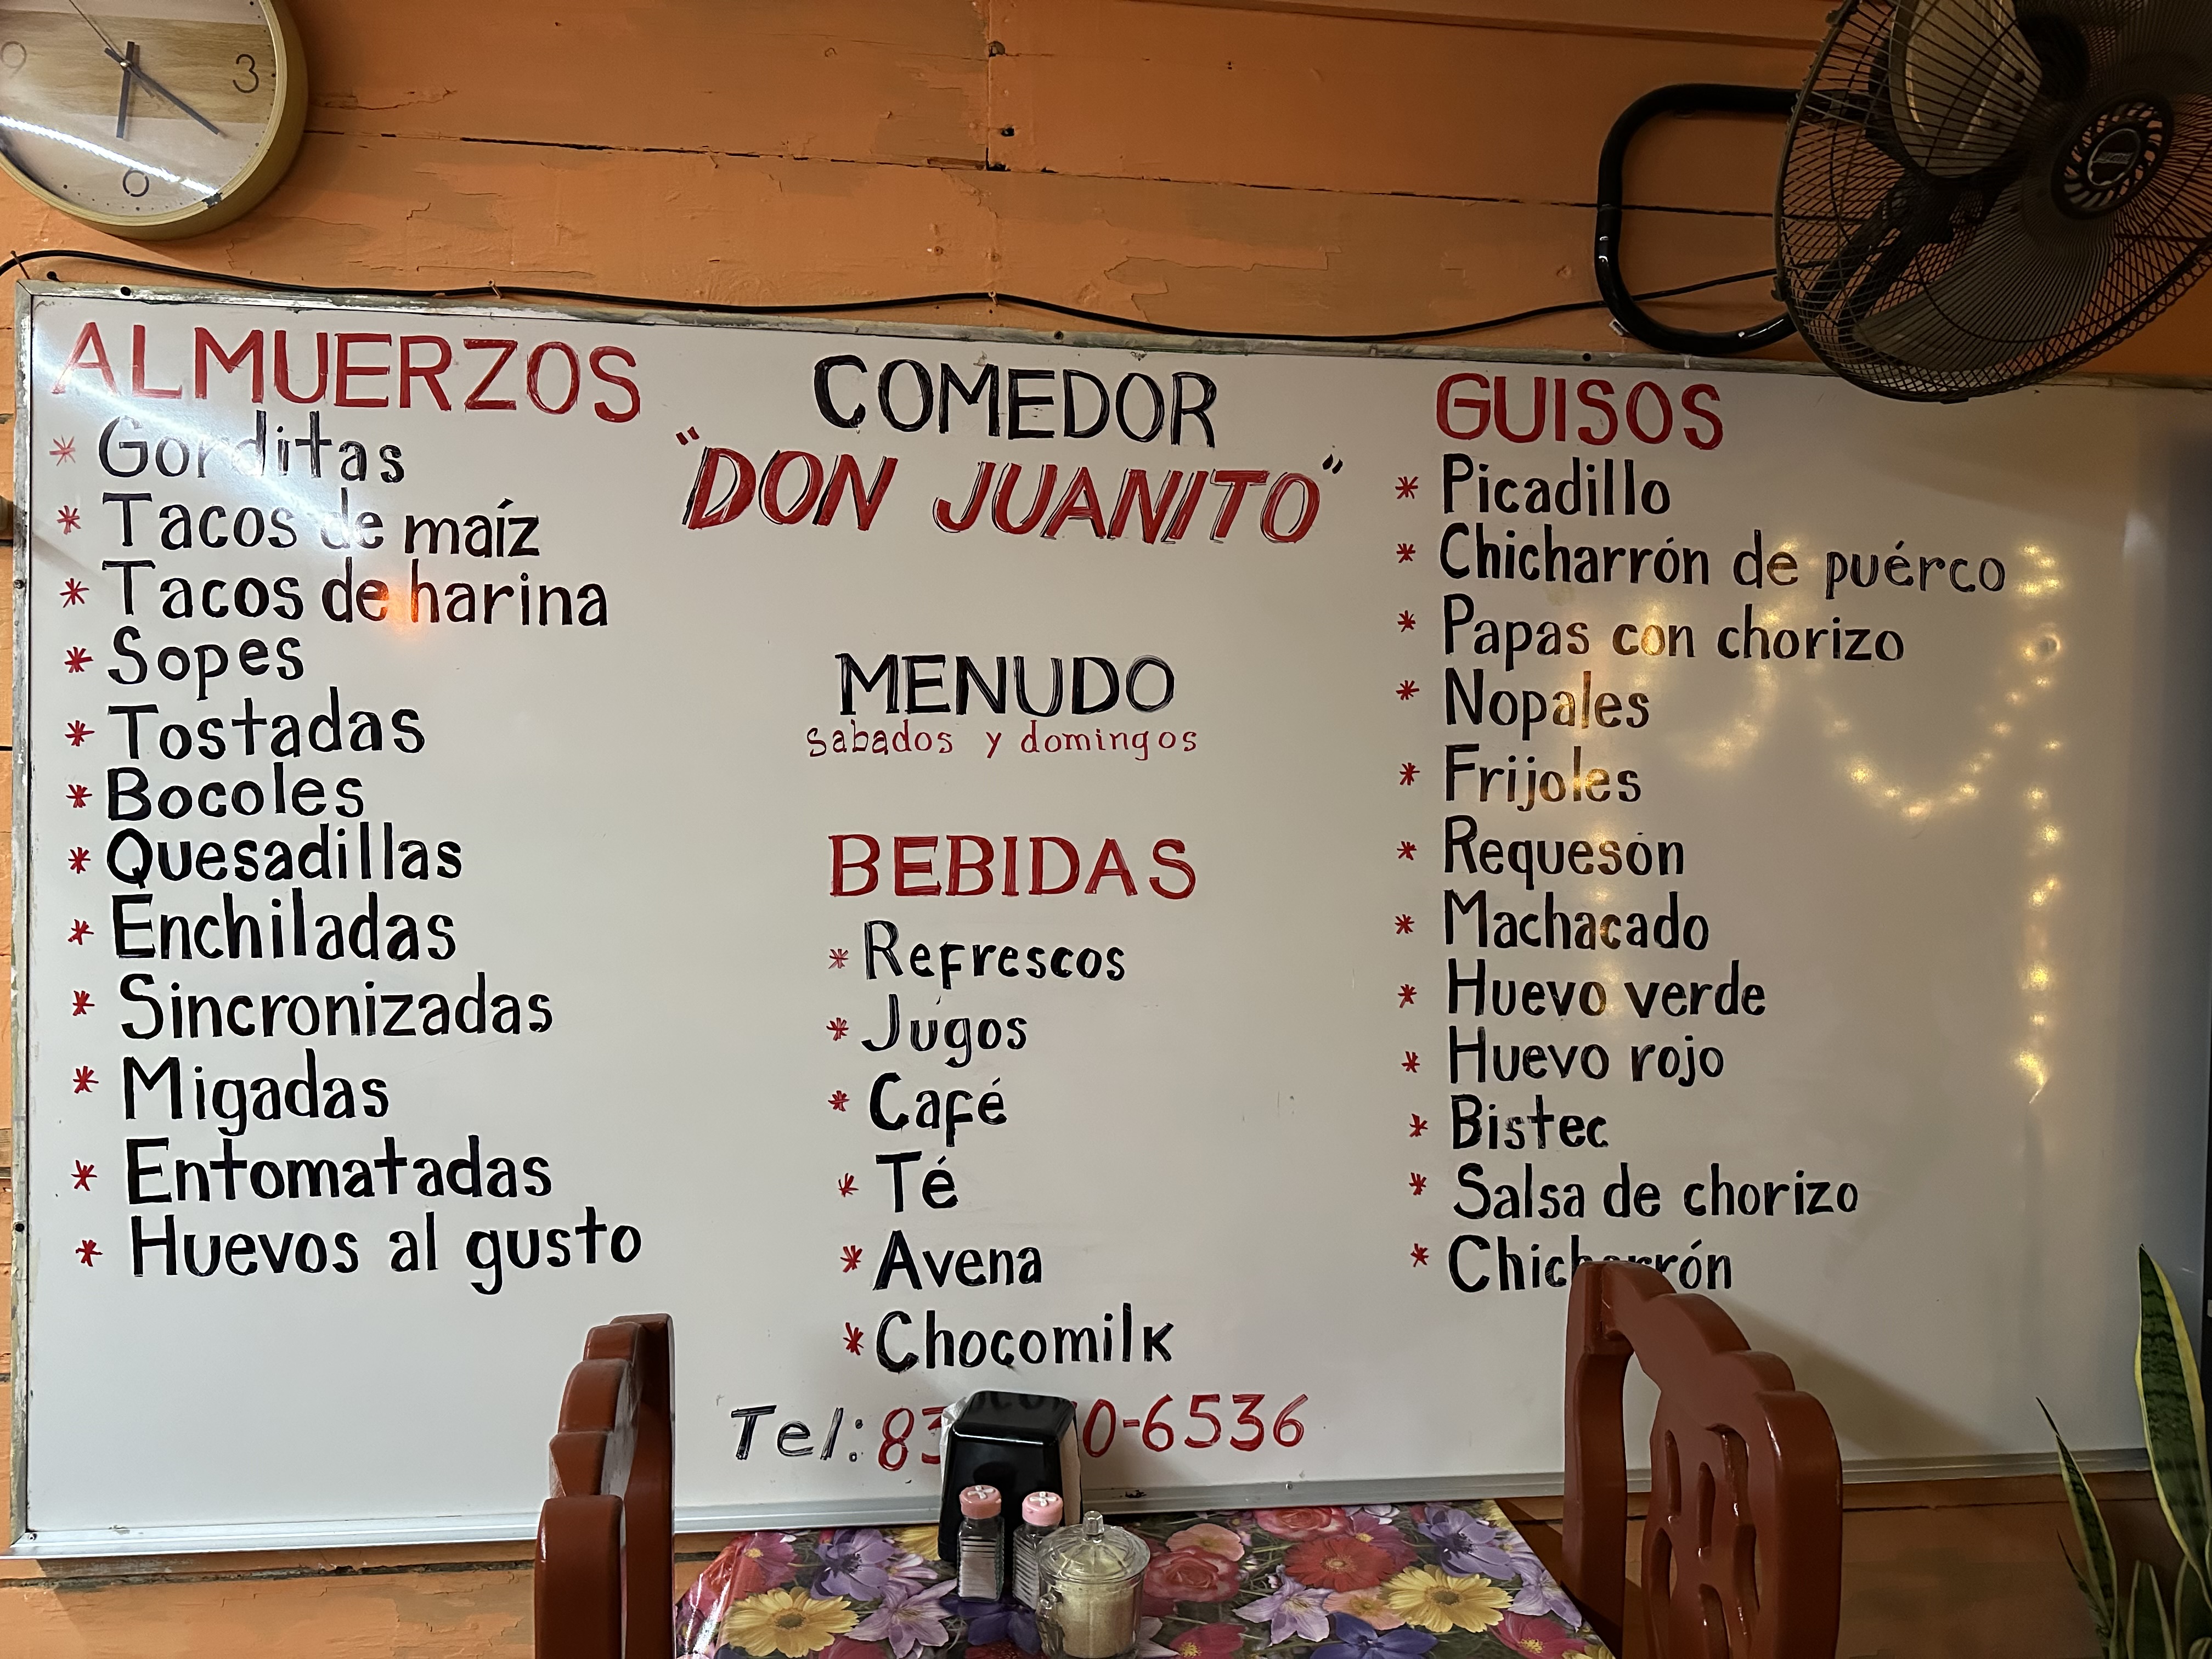 9
3
6
ALMUERZOS
* Gorditas
* Tacos de maíz
* Tacos de harina
* Sopes
* Tostadas
* Bocoles
* Quesadillas
* Enchiladas
* Sincronizadas
* Migadas
* Entomatadas
* Huevos al gusto
COMEDOR
"DON JUANITO"
MENUDO
sabados y domingos
BEBIDAS
* Refrescos
* Jugos
* Café
* Té
* Avena
* Chocomilk
Tel: 83 0-6536
GUISOS
* Picadillo
* Chicharrón de puérco
* Papas con chorizo
* Nopales
* Frijoles
* Requesón
* Machacado
* Huevo verde
* Huevo rojo
* Bistec
* Salsa de chorizo
* Chicharrón